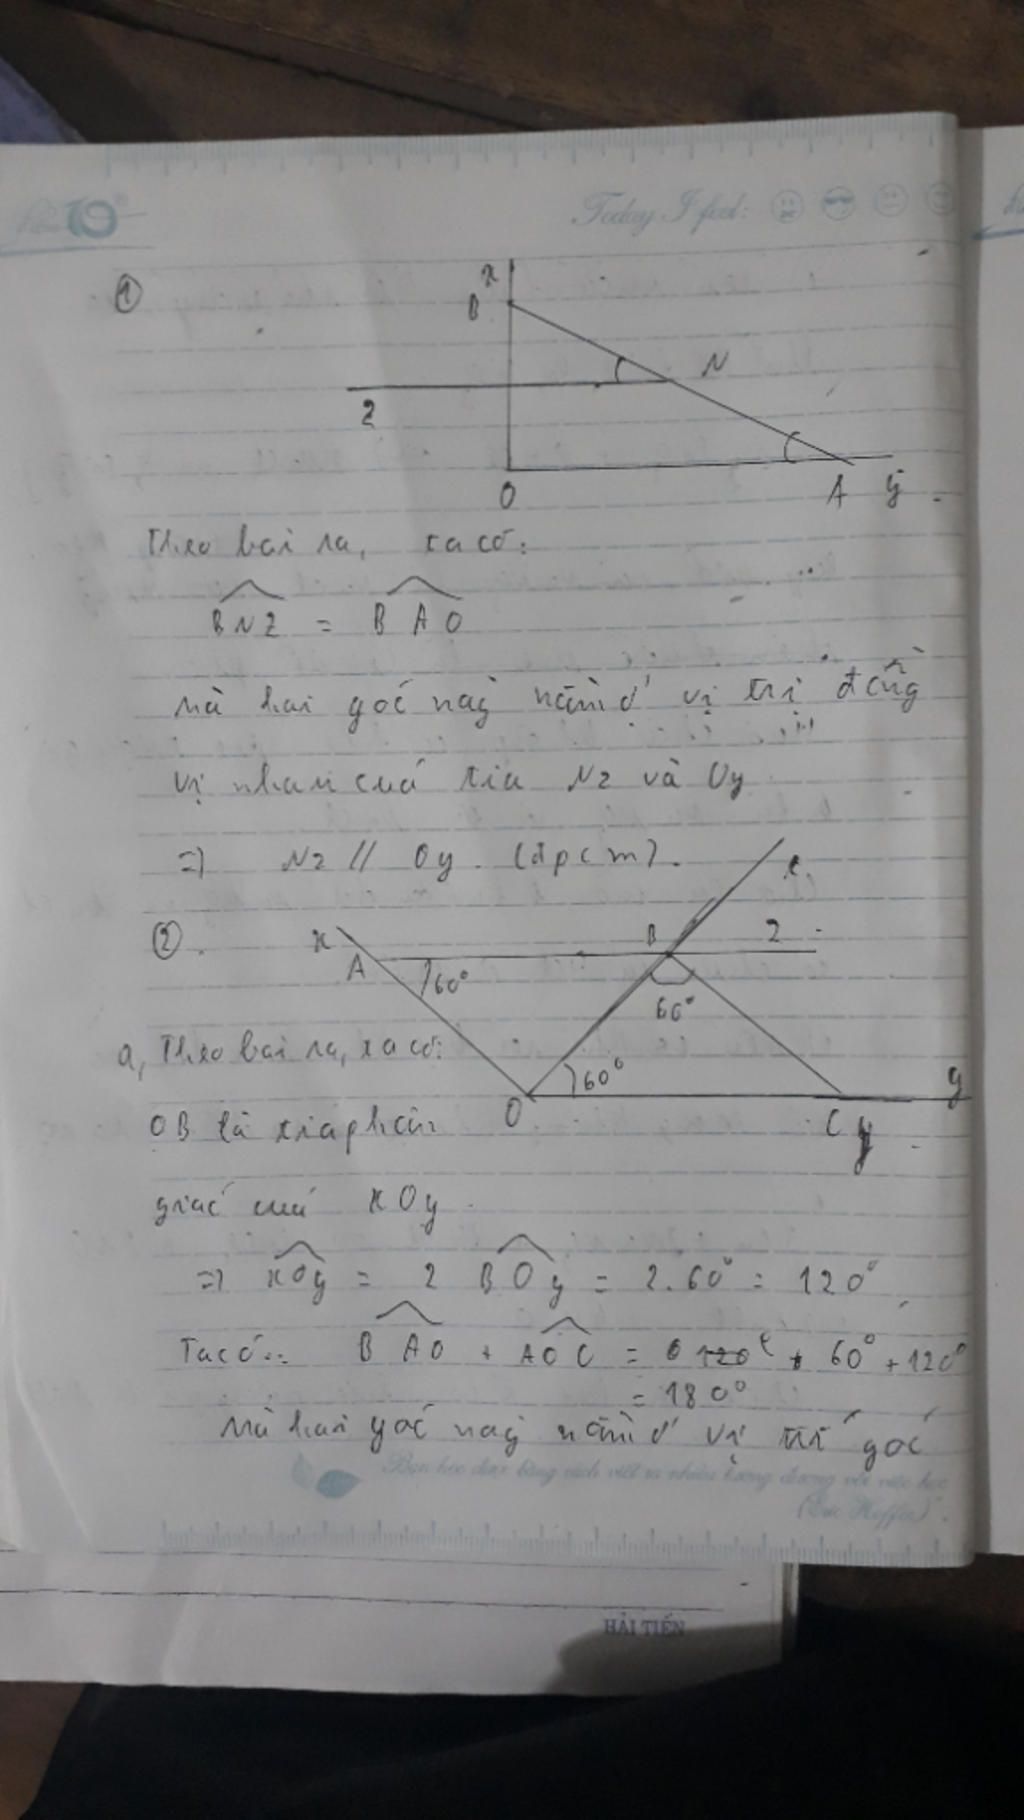 Today I feel:
①
x
B
N
z
O
A y
Theo bài ra, ta có:
BNz = BAO
mà hai góc này nằm ở vị trí đồng
vị nhau của tia Nz và Oy
=> Nz // Oy. (đpcm).
②.
x
A
60°
B
t
z
60°
60°
O
C y
y
a, Theo bài ra, ta có:
OB là tia phân
giác của xOy
=> xOy = 2 BOy = 2.60° = 120°
Ta có: BAO + AOC = 60° + 120°
= 180°
Mà hai góc này nằm ở vị trí góc
Bạn học được bằng cách viết ra nhiều tương đương với việc học
(Eric Hoffer).
HẢI TIẾN